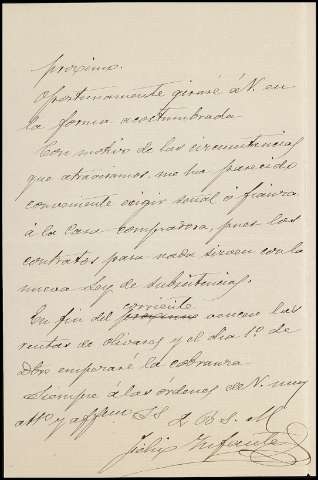 proximo.
Oportunamente giraré á V. en
la forma acostumbrada
Con motivo de las circunstancias
que atravesamos me ha parecido
conveniente exigir señal ó fianza
á la Casa compradora, pues los
contratos para nada sirven con la
nueva Ley de Subsistencias.
corriente
En fin del proximo vencen las
rentas de olivares y el dia 1º de
Dbre empezaré la cobranza
Siempre á las órdenes de V. muy
atto y affmo SS Q B S M
Julio Infante